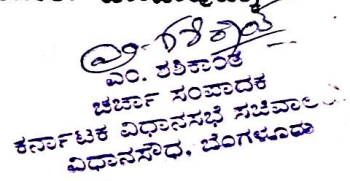 ಎಂ. ಶಶಿಕಾಂತ
ಚರ್ಚಾ ಸಂಪಾದಕ
ಕರ್ನಾಟಕ ವಿಧಾನಸಭೆ ಸಚಿವಾಲಯ
ವಿಧಾನಸೌಧ, ಬೆಂಗಳೂರು